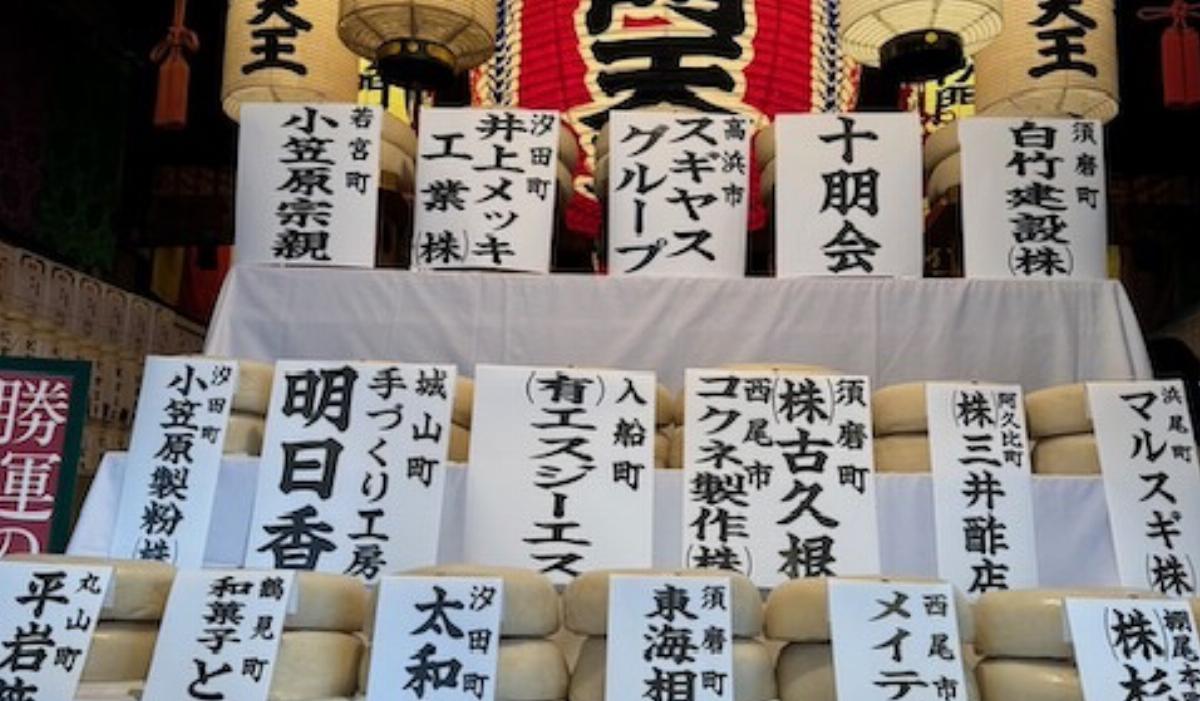 天王
天王
若宮町
小笠原宗親
汐田町
井上メッキ
工業(株)
高浜市
スギヤス
グループ
十朋会
須磨町
白竹建設(株)
勝運の
汐田町
小笠原製粉(株)
城山町
手づくり工房
明日香
入船町
(有)エスジーエス
須磨町
(株)古久根
西尾市
コクネ製作(株)
阿久比町
(株)三井酢店
浜尾町
マルスギ(株)
丸山町
平岩
鶴見町
和菓子と
汐田町
太和
須磨町
東海相
西尾市
メイテ
棚尾本
(株)杉